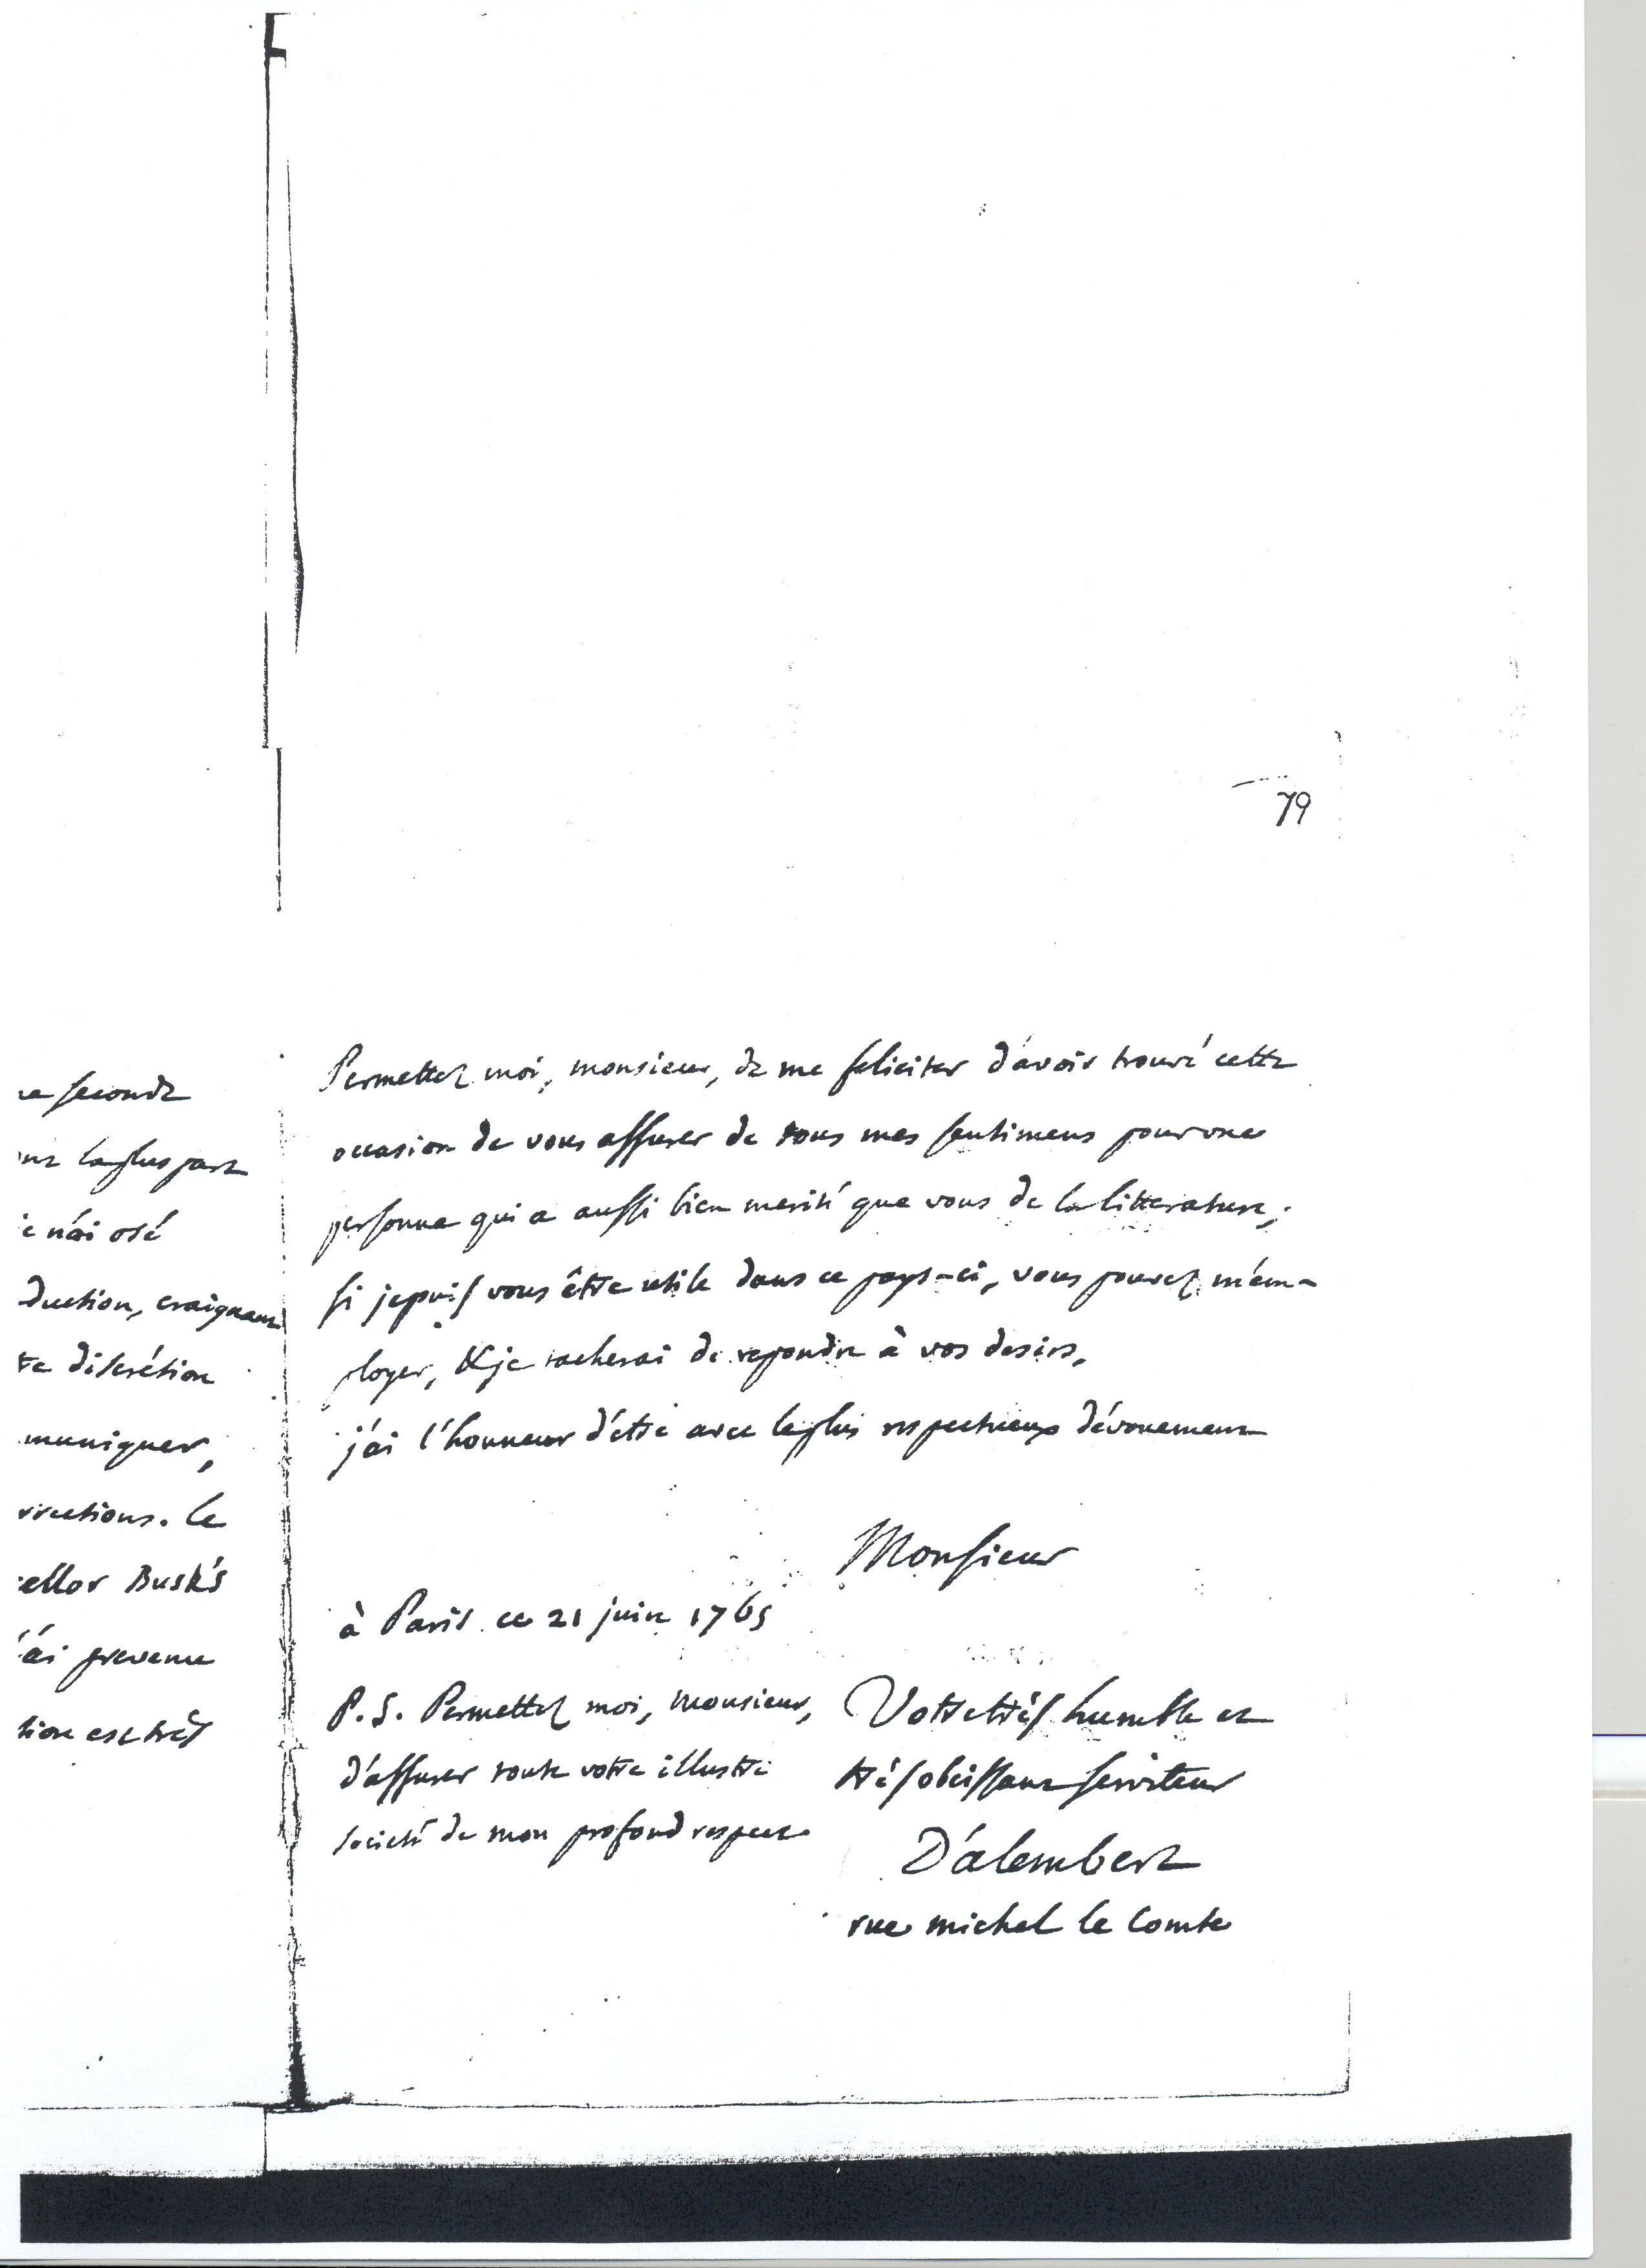 79
e seconde
la plus part
n'ai osé
duction, craignant
te discrétion
muniquer,
rrections. Le
ellor Busk's
'ai prevenu
tion est très
Permettez moi, monsieur, de me feliciter d'avoir trouvé cette
occasion de vous assurer de tous mes sentimens pour une
personne qui a aussi bien merité que vous de la litterature;
si je puis vous être utile dans ce pays-ci, vous pouvez m'em-
ployer, & je tacherai de repondre à vos desirs.
j'ai l'honneur d'être avec le plus respectueux dévouement
Monsieur
à Paris ce 21 juin 1765
P.S. Permettez moi, monsieur,
d'assurer toute votre illustre
société de mon profond respect
Votre très humble et
très obeissant serviteur
D'alembert
rue michel le comte